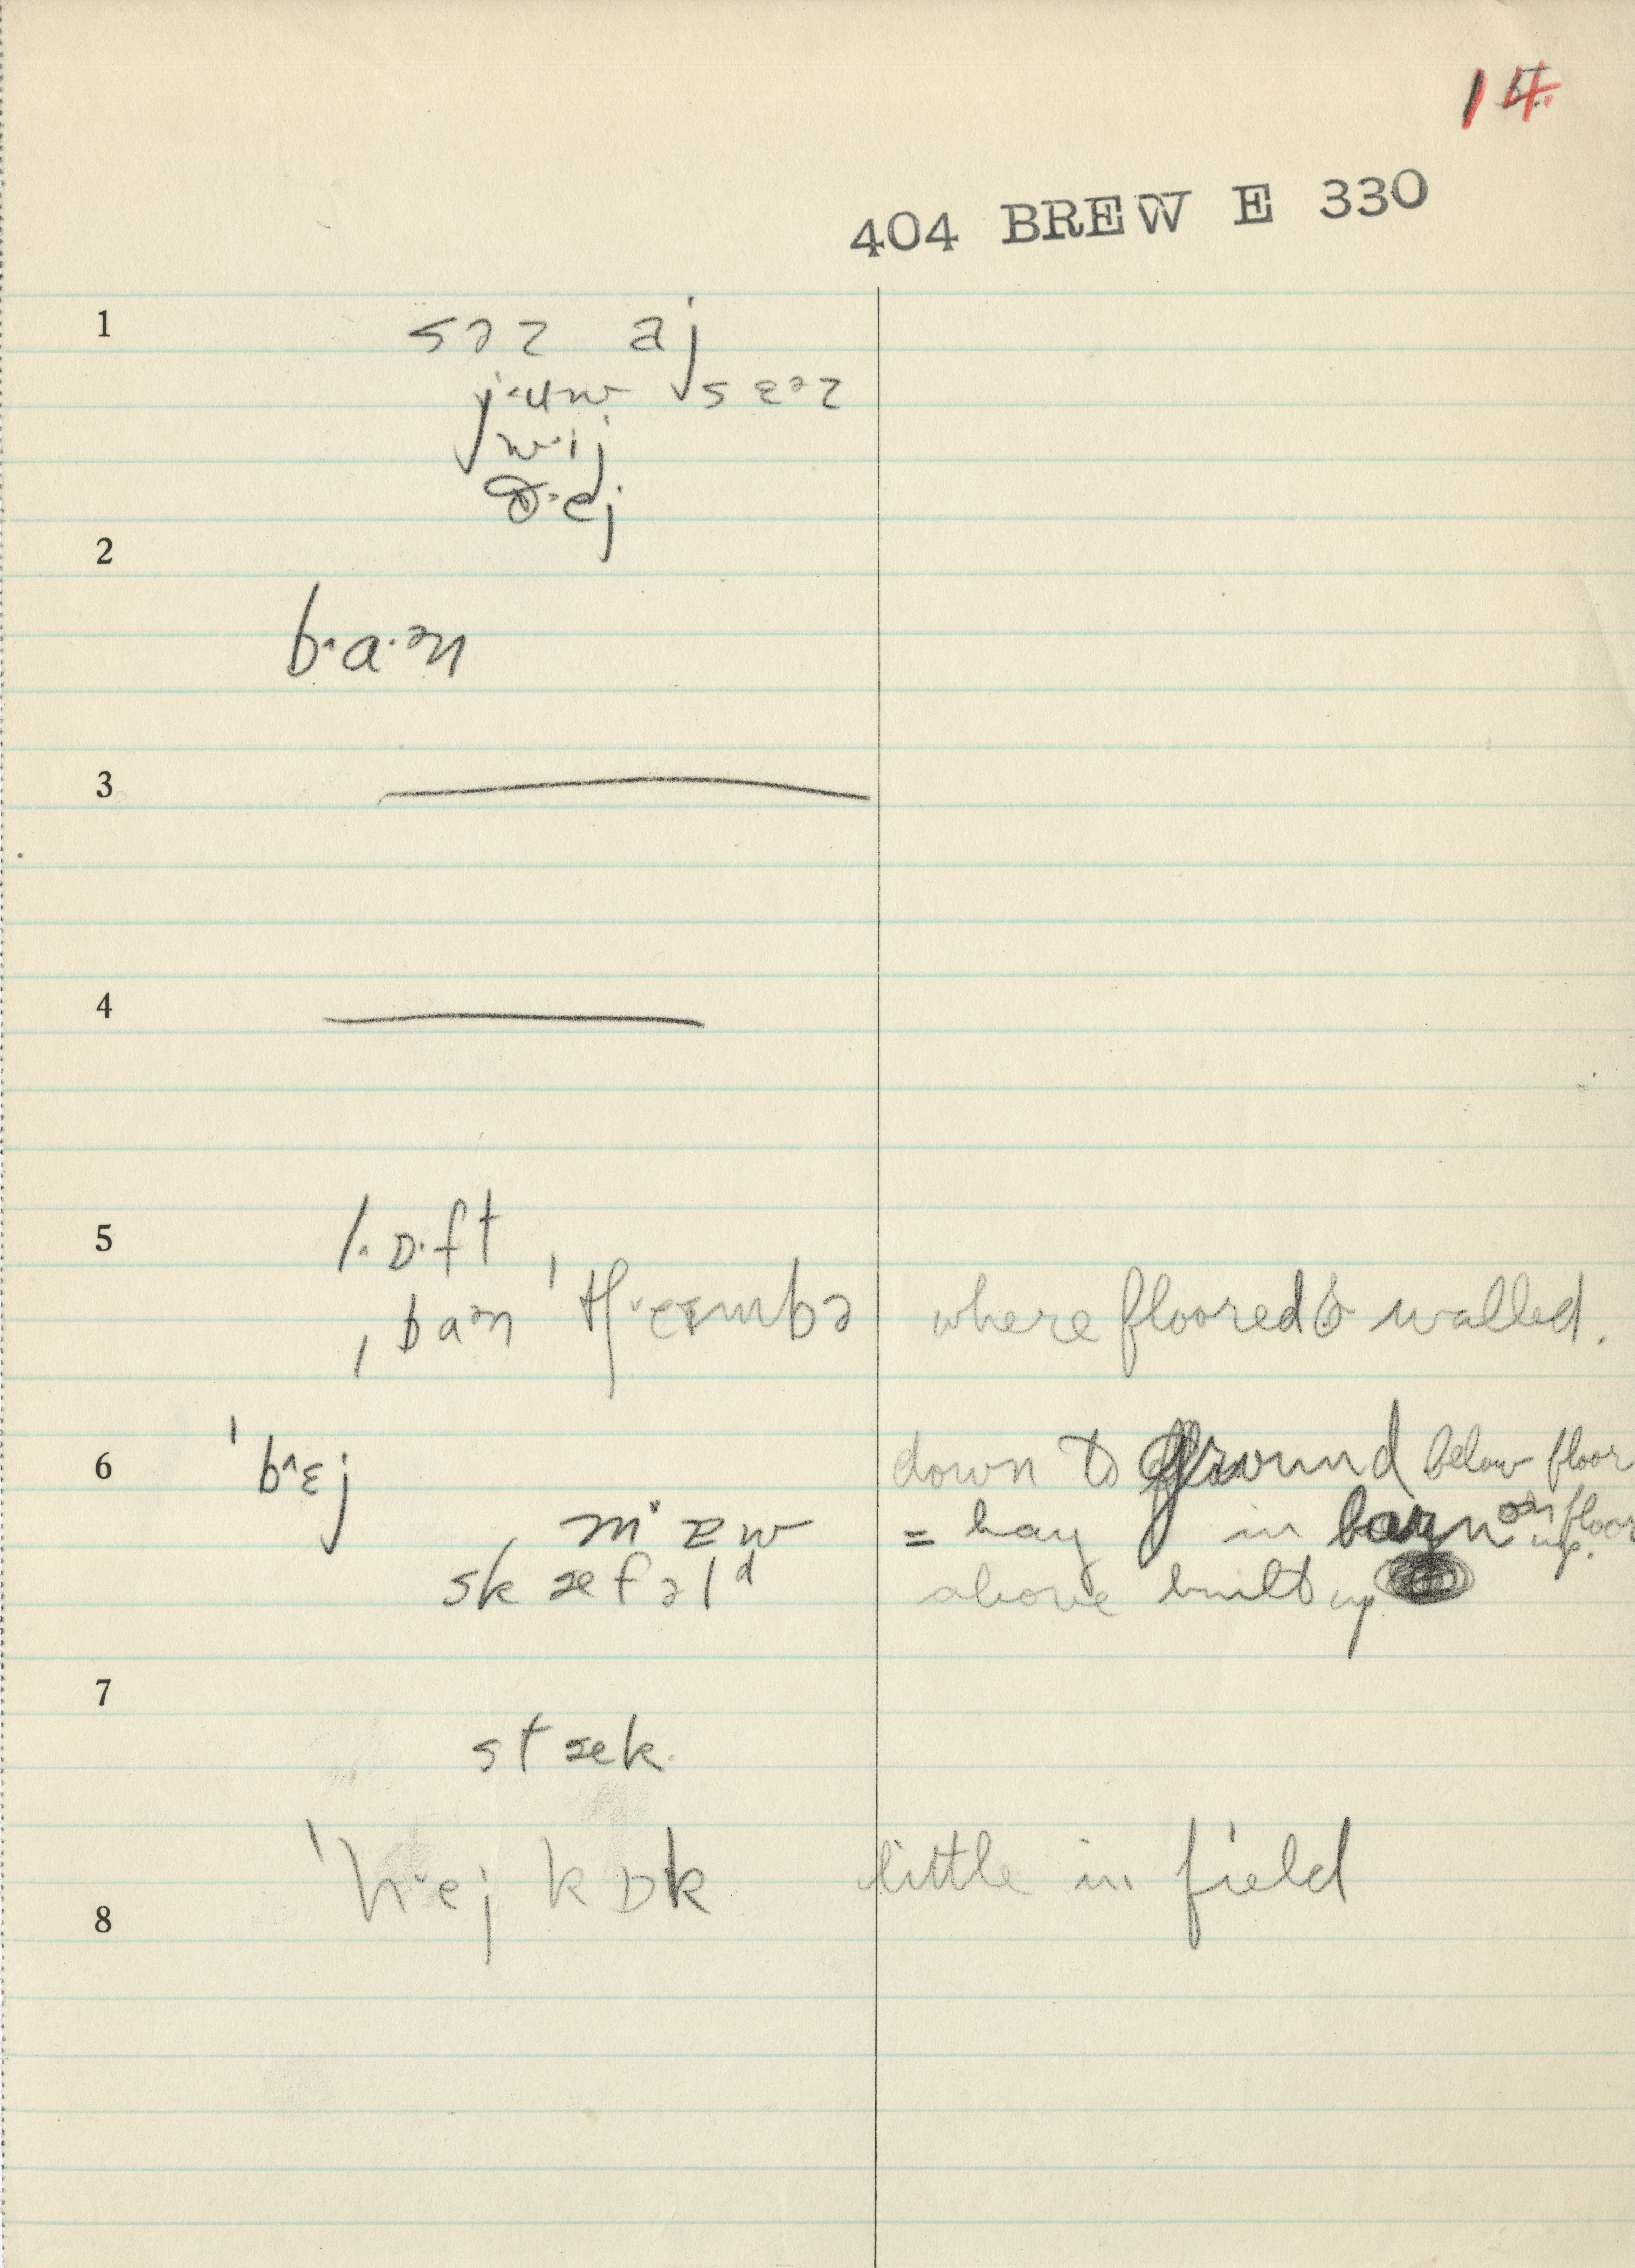 14
404 BREW E 330
1
səz aj
j˔ʉw sɛᵊz
w˔ij
ð˔ej
2
b˄·a·ᵊn
3
4
5
l˄ɒ·ft
ˌbaᵊn ˈtʃ˅eɪmbə where floored & walled.
6 ˈb˄ɛj down to ground below floor
m˅æw = hay in barn on floor up.
skæfəlᵈ above built up
7
stæk.
ˈh˅ej kɒk little in field
8